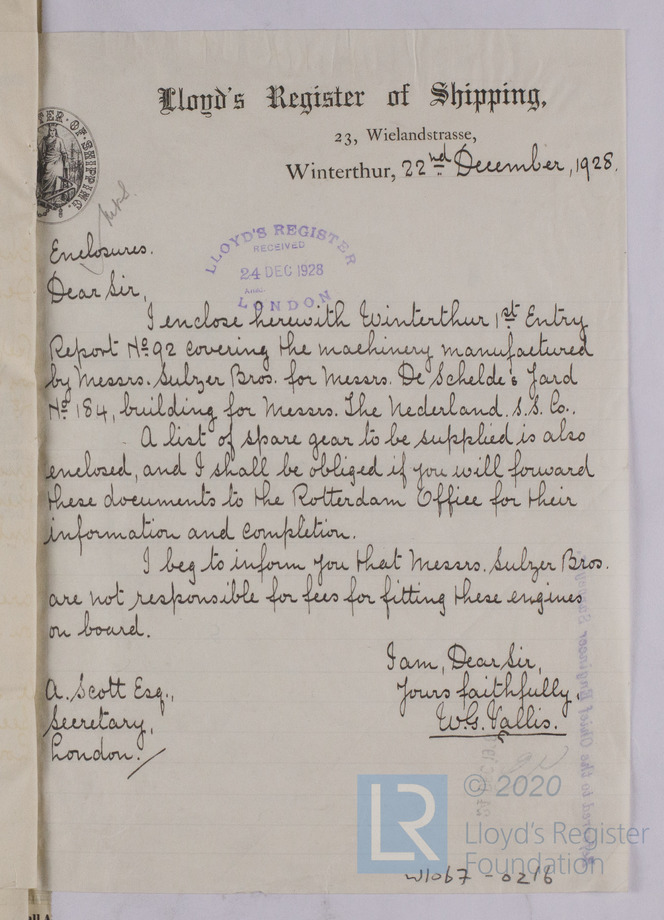 Lloyd's Register of Shipping,
23, Wielandstrasse,
Winterthur, 22nd December, 1928.
TER·OF·SHIPPING.
Enclosures.
LLOYD'S REGISTER
RECEIVED
24 DEC 1928
LONDON
Dear Sir,
I enclose herewith Winterthur 1st Entry
Report No 92 covering the machinery manufactured
by Messrs. Sulzer Bros. for Messrs. De Schelde's Yard
No 184, building for Messrs. The Nederland. S.S. Co..
A list of spare gear to be supplied is also
enclosed, and I shall be obliged if you will forward
these documents to the Rotterdam Office for their
information and completion.
I beg to inform you that Messrs. Sulzer Bros.
are not responsible for fees for fitting these engines
on board.
I am, Dear Sir,
Yours faithfully.
W.G. Vallis.
A. Scott Esq.,
Secretary,
London.
LR
© 2020
Lloyd's Register
Foundation
W1067-0216